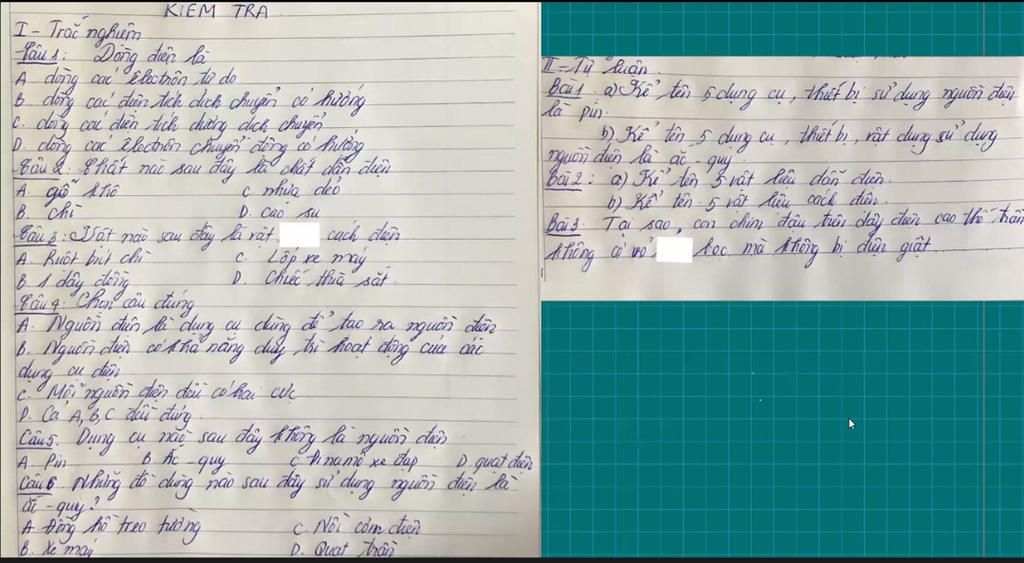 KIEM TRA
I - Trắc nghiệm
Câu 1: Dòng điện là
A. dòng các êlectrôn tự do
B. dòng các điện tích dịch chuyển có hướng
C. dòng các điện tích dương dịch chuyển
D. dòng các êlectrôn chuyển động có hướng
Câu 2: Chất nào sau đây là chất dẫn điện
A. gỗ khô C. nhựa dẻo
B. chì D. cao su
Câu 3: Vật nào sau đây là vật cách điện
A. Ruột bút chì C. Lốp xe máy
B. 1 dây đồng D. Chiếc thìa sắt
Câu 4: Chọn câu đúng
A. Nguồn điện là dụng cụ dùng để tạo ra nguồn điện
B. Nguồn điện có khả năng duy trì hoạt động của các
dụng cụ điện
C. Mỗi nguồn điện đều có hai cực
D. Cả A, B, C đều đúng
Câu 5. Dụng cụ nào sau đây không là nguồn điện
A. Pin B. Ắc - quy C. Đinamô xe đạp D. quạt điện
Câu 6 Những đồ dùng nào sau đây sử dụng nguồn điện là
ắc - quy?
A. Đồng hồ treo tường C. Nồi cơm điện
B. Xe máy D. Quạt trần
II - Tự luận
Bài 1 a) Kể tên 5 dụng cụ, thiết bị sử dụng nguồn điện
là pin.
b) Kể tên 5 dụng cụ, thiết bị, vật dụng sử dụng
nguồn điện là ắc - quy
Bài 2: a) Kể tên 5 vật liệu dẫn điện
b) Kể tên 5 vật liệu cách điện.
Bài 3: Tại sao, con chim đậu trên dây điện cao thế trần
không có vỏ bọc mà không bị điện giật